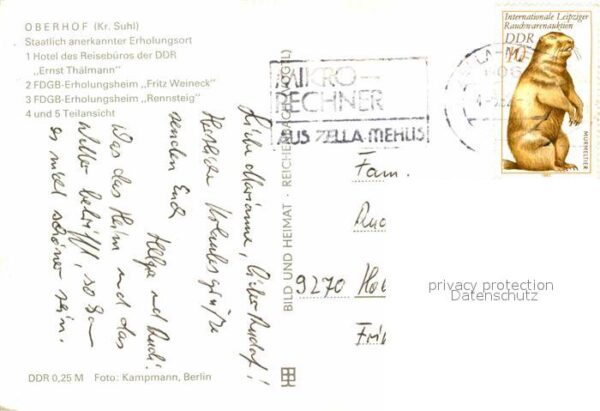 OBERHOF (Kr. Suhl)
Staatlich anerkannter Erholungsort
1 Hotel des Reisebüros der DDR
„Ernst Thälmann"
2 FDGB-Erholungsheim „Fritz Weineck"
3 FDGB-Erholungsheim „Rennsteig"
4 und 5 Teilansicht
Liebe Marianne, lieber Rudolf!
Herzliche Urlaubsgrüße
senden Euch
Helga und Rudi.
Was das Heim und das
Wetter betrifft, so kann
es nicht schöner sein.
DDR 0,25 M Foto: Kampmann, Berlin
BILD UND HEIMAT · REICHENBACH (VOGTL)
MIKRO-
RECHNER
AUS ZELLA-MEHLIS
Internationale Leipziger
Rauchwarenauktion
DDR
10
MURMELTIER
Fam.
9270
privacy protection
Datenschutz